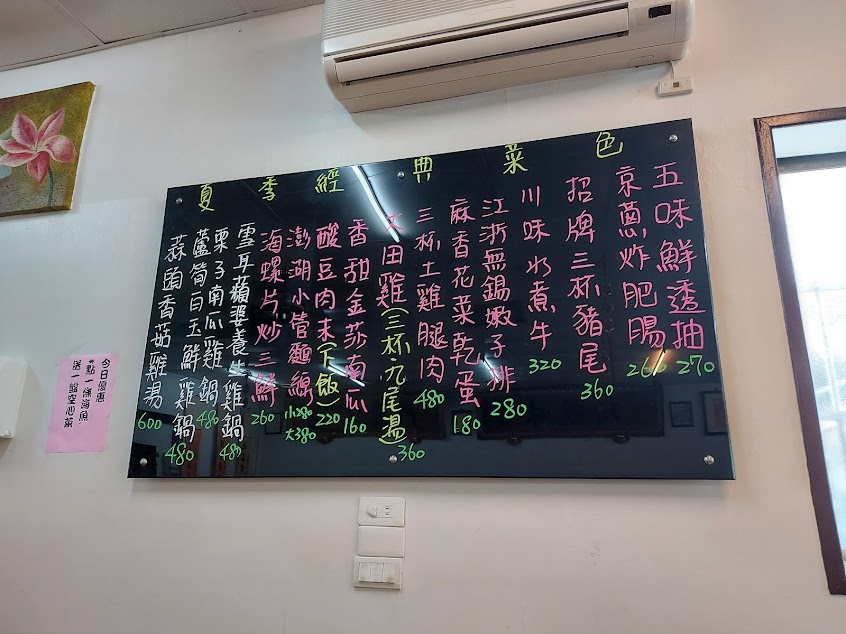 夏季經典菜色
五味鮮透抽 270
京蔥炸肥腸 260
招牌三杯豬尾 360
川味水煮牛 320
江浙無錫嫩子排 280
麻香花菜乾蛋 180
三杯土雞腿肉 480
大田雞(三杯.九尾湯) 360
香甜金莎南瓜 160
酸豆肉末(下飯) 220
澎湖小管麵線 小280 大380
海螺片炒三鮮 260
雪耳蘋婆養生雞鍋 480
栗子南瓜雞鍋 480
蘆筍白玉鮮雞鍋 480
蒜頭香菇雞湯 600
今日優惠
點一條海魚
送一盤空心菜